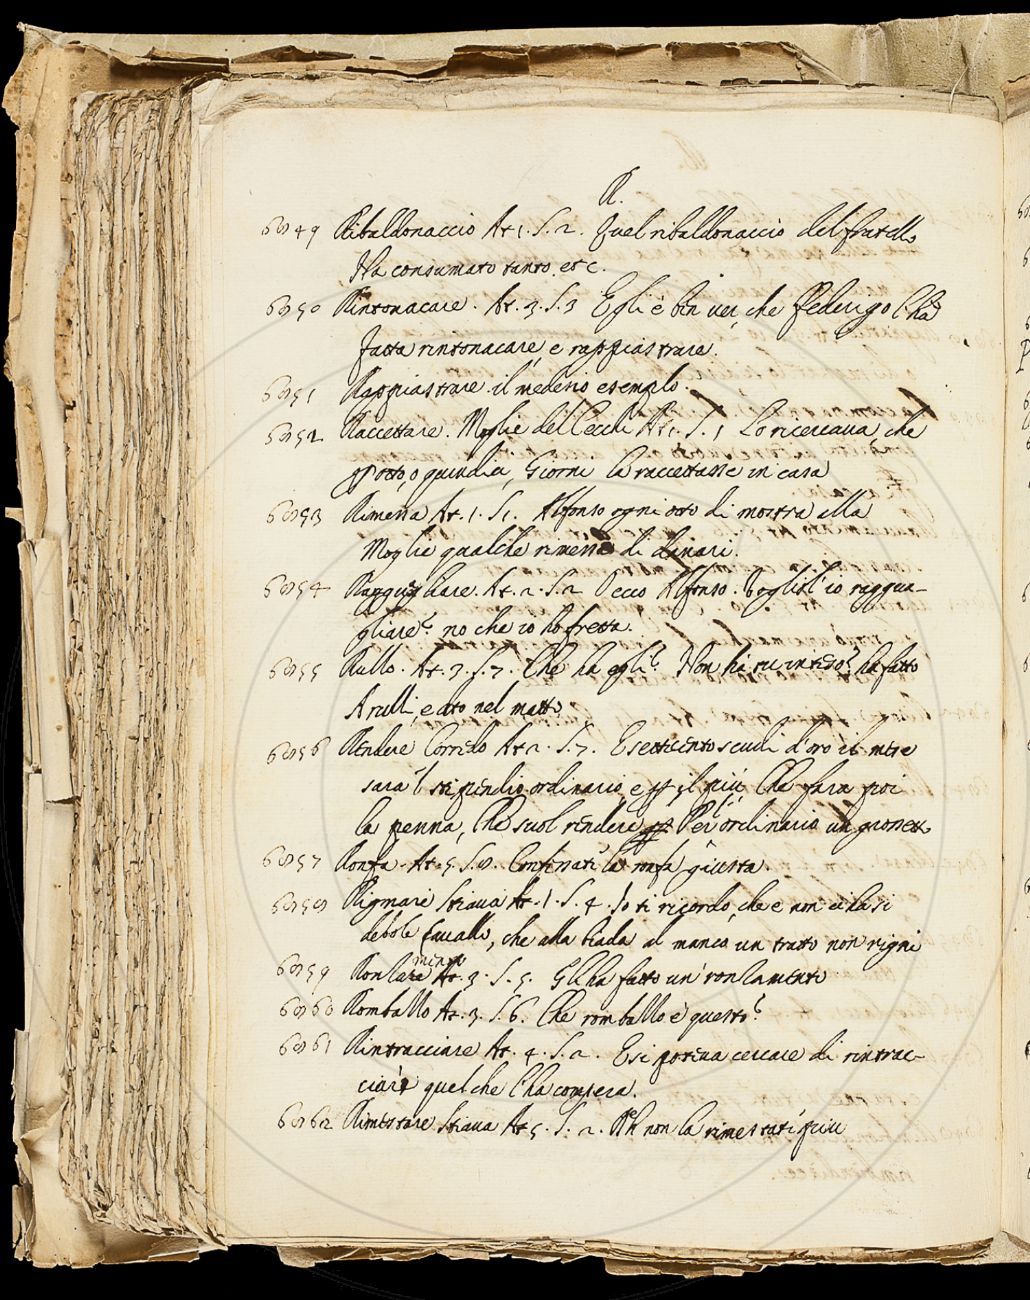 R.
6849 Ribaldonaccio At 1. S. 2. Quel ribaldonaccio del fratello
Ha consumato tanto, etc.
6850 Rintonacare. At. 3. S. 3 Egli è ben ver, che Federigo l'ha
fatta rintonacare, e rappiastrare.
6851 Rappiastrare il medesimo esemplo.
6852 Raccettare. Moglie del Cecchi At 1. S. 1 Lo ricercava, che
otto, o quindici Giorni la raccettasse in casa
6853 Rimessa At. 1. S 1. Alfonso ogni otto di mostra alla
Moglie qualche rimessa di danari.
6854 Ragguagliare. At. 2. S. 2 Pecco Alfonso. Vogliol' io raggua-
gliare? no che io ho fretta.
6855 Rullo. At. 3. S. 7. Che ha egli? Non hai tu inteso? ha fatto
A rulli, e dato nel matto
6856 Rendere Corredo At 2. S. 7. E settecento scudi d'oro il mese
sara 'l stipendio ordinario e il più, Che fara poi
la penna, Che suol rendere Per ordinario un
6857 Ronfa. At. 5. S. 8. la ronfa giusta.
6858 Rignare Stiava At. 1. S. 4. Io ti ricordo, che e non ci ha si
debole cavallo, che alla biada al manco un tratto non rigni
6859 At. 3. S. 5. Gli ha fatto un
6860 Rombazzo At. 3. S. 6. Che rombazzo è questo?
6861 Rintracciare At. 4. S. 2. E si poteva cercare di rintrac-
ciare quel che l'ha compera.
6862 Rimestare Stiava At 5. S. 2. Eh non la rimestati più